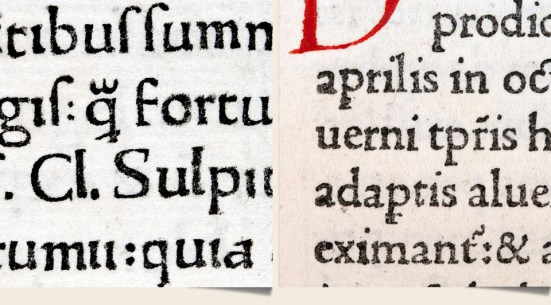 ctibuſſumm
giſ: q̃̈ fortu
. Cl. Sulpit
tumii:quia
D prodic
aprilis in oc
uerni tpr̃is h
adaptis alue
eximant̃:& a